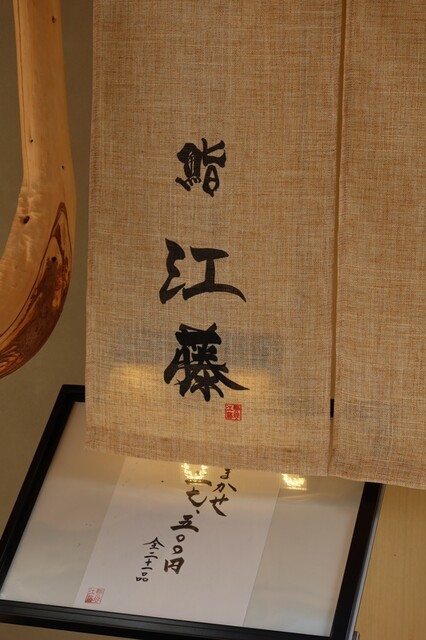 鮨
江藤
まかせ
五〇〇円
全二十一品